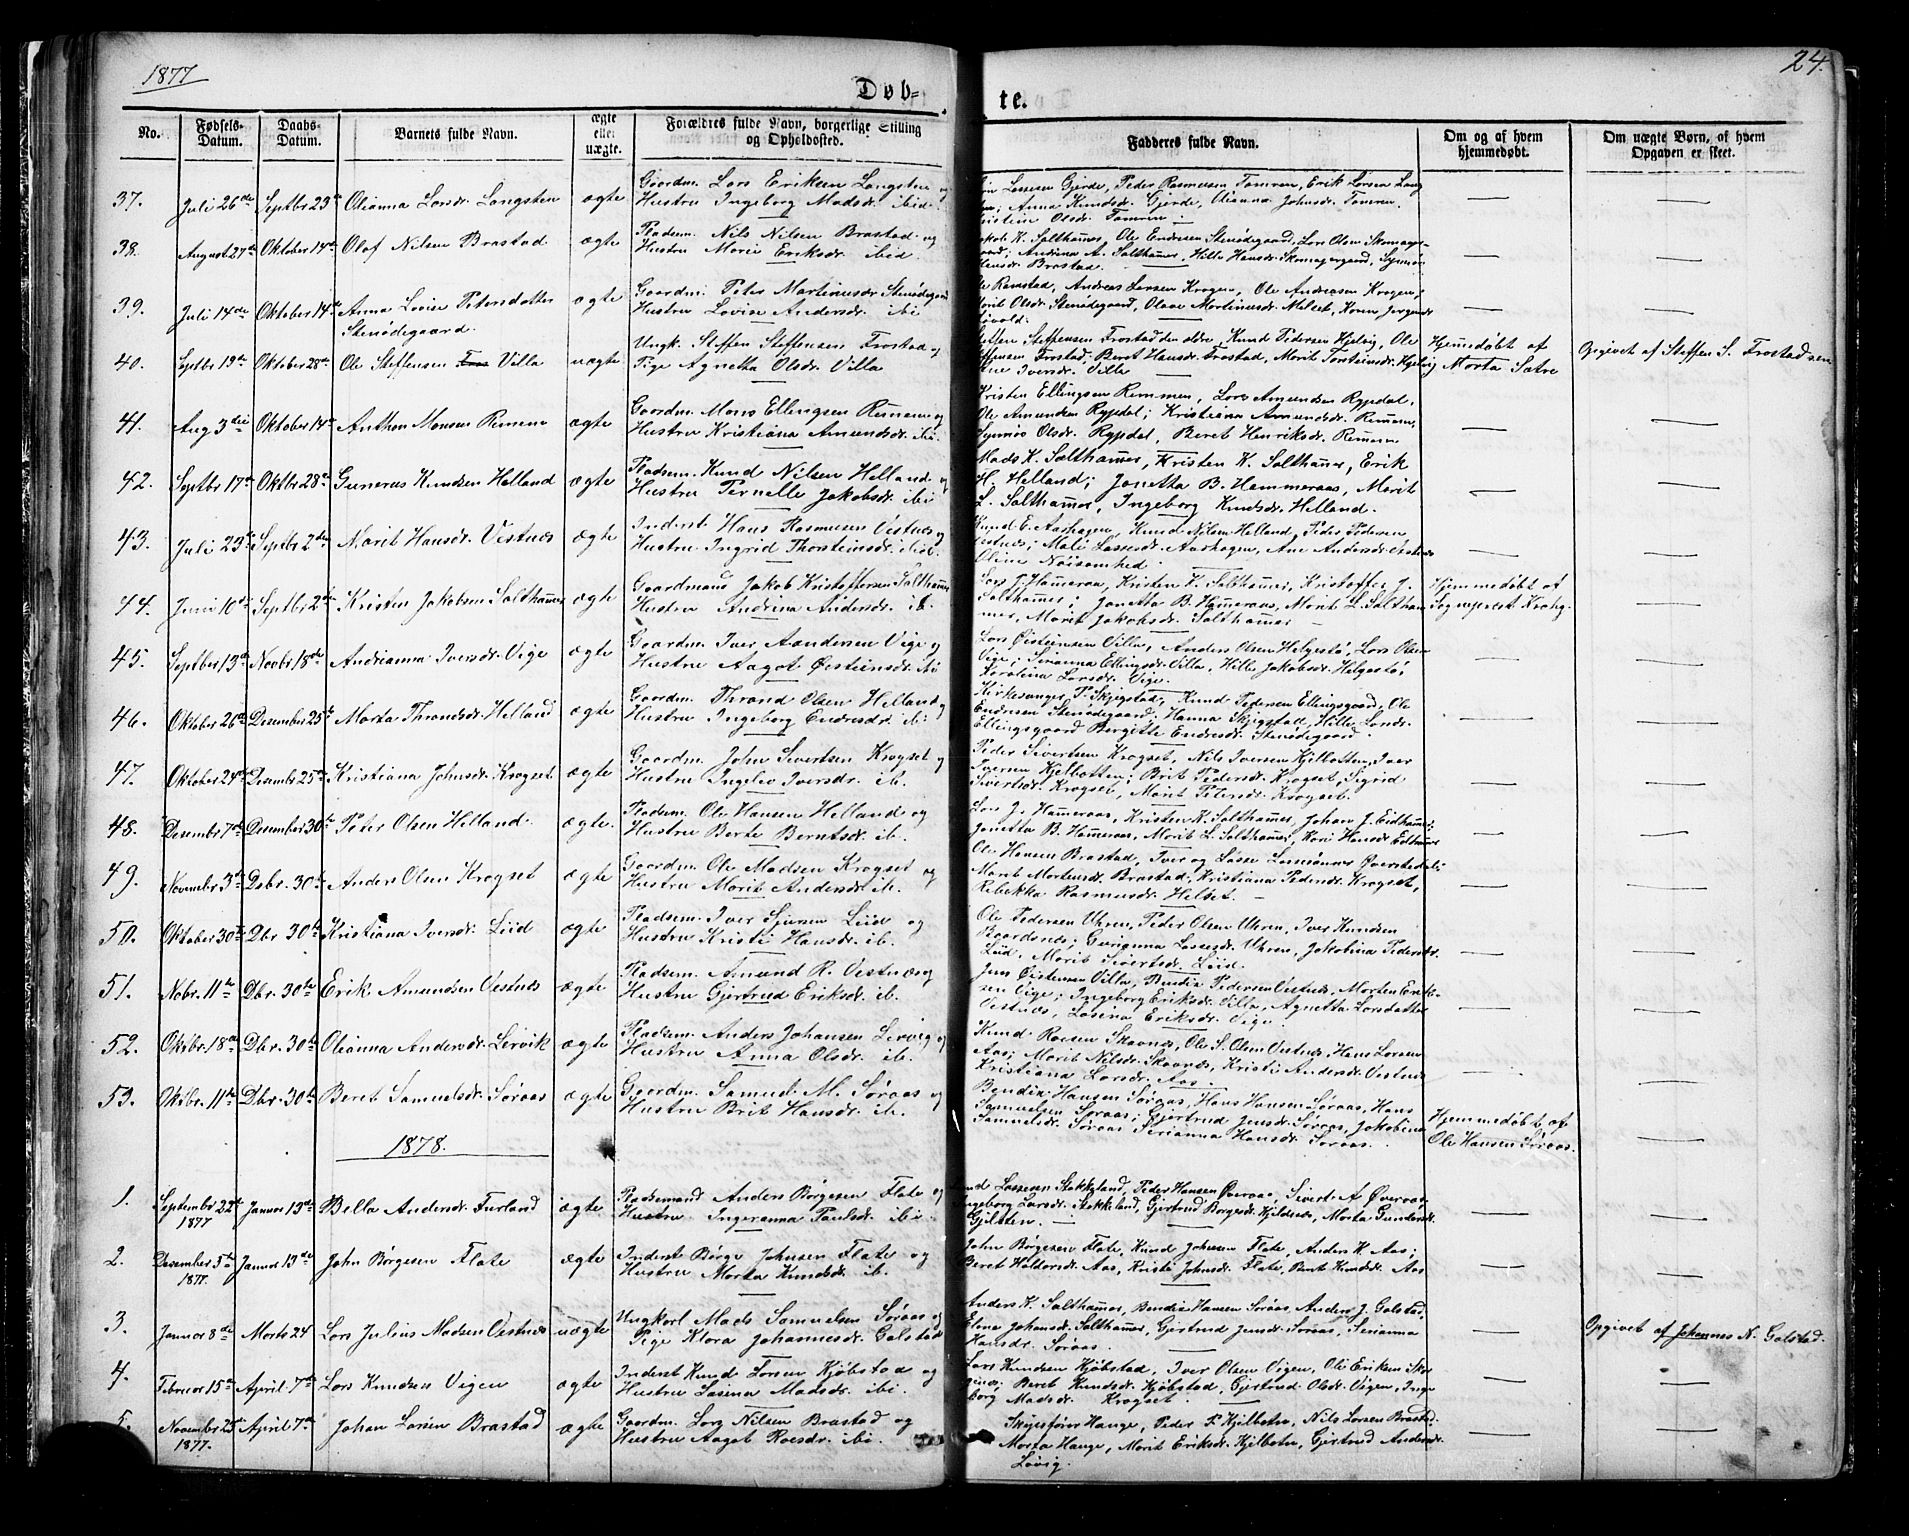 1877
24.
Døb=
te.
No.
Fødsels-
Datum.
Daabs-
Datum.
Barnets fulde Navn.
ægte
eller
uægte.
Forældres fulde Navn, borgerlige Stilling
og Opholdssted.
Fadderes fulde Navn.
Om og af hvem
hjemmedøbt.
Om uægte Børn, af hvem
Opgaven er skeet.
37. Juli 26de Septbr 23de Olianna Larsdr. Langsten ægte
Gaardm. Lars Eriksen Langsten og
Hustru Ingeborg Madsdr. ibid.
Lassesen Gjerde, Peder Rasmussen Tomren, Erik Larsen
Anna Knudsdr. Gjerde, Olianna Johnsdr. Tomren.
Olsdr. Tomren.
38. August 27de Oktober 14de Olaf Nilsen Brastad ægte
Pladsem. Nils Nilsen Brastad og
Hustru Marie Eriksdr. ibid.
K. Salthamer, Ole Endresen Stenødegaard, Lars Olsen
Andrina A. Salthamer, Hille Hansdr. Skomagergaard, Synnøv
Brastad.
39. Juli 14de Oktober 14de Anna Lovise Petersdatter
Stenødegaard ægte
Gaardm. Peter Martinusdr. Stenødegaard
Hustru Lovise Andersdr. ibi
Ramstad, Andreas Larsen Krogen, Ole Andreasen Krogen,
Marit Olsdr. Stenødegaard, Olave Martinusdr. Melset, Karen
40. Septbr 19de Oktober 28de Ole Steffensen Villa uægte
Ungk. Steffen Steffensen Frostad og
Pige Agnetha Olsdr. Villa
Steffen Steffensen Frostad den eldre, Knud Pedersen Hjelvig, Ole
Steffensen Frostad, Beret Hansdr. Frostad, Marit Hjelvig
Iversdr. Villa
Hjemmedøbt af
Marta Sætre
Opgivet af Steffen S. Frostadsen
41. Aug 3die Oktober 14de Anthon Monsen Remem ægte
Gaardm. Mons Ellingsen Remem og
Hustru Kristiana Amundsdr. ibi.
Kristen Ellingsen Remmen, Lars Amundsen Rypdal,
Ole Amundsen Rypdal; Kristiana Amundsdr. Remmem,
Synnøv Olsdr. Rypdal, Beret Henriksdr. Remmem
42. Septbr 17de Oktbr 28de Gunerus Knudsen Helland ægte
Pladsem. Knud Nilsen Helland og
Hustru Pernelle Jakobsdr. ibi
Mads K. Salthamer, Kristen K. Salthamer, Erik
H. Helland; Jonetta B. Hammeraas, Marit
L. Salthamer, Ingeborg Knudsdr. Helland.
43. Juli 23de Septbr 2de Marit Hansdr. Vestnes ægte
Inderst Hans Rasmusen Vestnes og
Hustru Ingrid Thorsteinsdr. ibid.
Knud E. Aashagen, Knud Nilsen Helland, Peder Pedersen
Vestnes; Mali Lassesdr. Aashagen, Ane Andersdr. Vestnes
Oline Nøisomhed
44. Juni 10de Septbr 2de Kristen Jakobsen Salthamer ægte
Gaardmand Jakob Kristoffersen Salthamer
Hustru Andrina Andersdr. ib.
Lars J. Hameraas, Kristen K. Salthamer, Kristoffer J.
Salthamer; Jonetta B. Hameraas, Marit L. Saltham
mer, Maret Jakobsdr. Salthamer
Hjemmedøbt af
Sogneprest Krohg.
45. Septber 13de Novbr. 18de Andrianna Iversdr. Vige ægte
Gaardm. Iver Aandersen Vige og
Hustru Aagot Øisteinsdr. ibi
Lars Øisteinsen Villa, Anders Olsen Helgestø, Lars Olsen
Vige; Serianna Ellingsdr. Villa, Hille Jakobsdr. Helgestø,
Karolina Larsdr. Vige.
46. Oktober 26de Desember 25de Marta Thrandsdr. Helland ægte
Gaardm. Thrand Olsen Helland og
Hustru Ingeborg Endresdr. ibi
Kirkesanger P. Skjegstad, Knud Pedersen Ellingsgaard, Ole
Endresen Stenødegaard; Hanna Skjegstad, Hille Larsdr.
Ellingsgaard Bergitte Endresdr. Stenødegaard.
47. Oktober 24de Desembr 25de Kristiana Johnsdr. Krogset ægte
Gaardm. John Sivertsen Krogset og
Hustru Ingelev Iversdr. ib.
Peder Sivertsen Krogset, Nils Iversen Kjelbotten, Iver
Iversen Kjelbotten; Brit Pedersdr. Krogset, Sigrid
Sivertsdr. Krogset, Marit Petersdr. Krogset.
48. Desembr 7de Desember 30te Peter Olsen Helland. ægte.
Pladsem. Ole Hansen Helland og
Hustru Berte Berntsdr. ib.
Lars J. Hameraas, Kristen K. Salthamer, Johan J. Eidhamer;
Jonetta B. Hameraas, Marit L. Salthamer, Kari Hansdr. Eidhamer
49. November 3de Dsbr. 30te Anders Olsen Krogset ægte
Gaardm. Ole Madsen Krogset og
Hustru Marit Andersdr. ib.
Ole Hansen Brastad, Iver og Lasse
Marit Mortensdr. Brastad, Kristiana Pedersdr. Krogset,
Rebekka Rasmusdr. Helset.
50. Oktober 30te Dbr 30te Kristiana Iversdr. Liid ægte
Pladsem. Iver Sjursen Liid og
Hustru Kristi Hansdr. ib.
Ole Pedersen Uhren, Peder Olsen Uhren, Iver Knudsen
Baardsnes; Gurianna Lassesdr. Uhren, Jakobina Pedersdr.
Liid. Marit Sivertsdr. Liid.
51. Nobr. 11te Dbr. 30te Erik Amundsen Vestnes ægte
Pladsem. Amund R. Vestnes og
Hustru Gjertrud Eriksdr. ib.
Jens Øistensen Villa, Bendix Pedersen Vestnes, Morten Erik-
sen Vige; Ingeborg Eriksdr. Villa, Agnetha Larsdatter
Vestnes, Lasina Eriksdr. Vige.
52. Oktbr. 18de Dbr. 30te Olianna Andersdr. Lervik ægte
Pladsem. Anders Johansen Lervig og
Hustru Anna Olsdr. ib.
Knud Roesen Skaanes, Ole S. Olsen Vestnes, Hans Larsen
Aas; Marit Nilsdr. Skaanes, Kristi Andersdr. Vestnes
Kristiana Larsdr. Aas.
53. Oktbr. 11te Dbr. 30te Beret Samuelsdr. Søraas ægte
Gaardm. Samuel M. Søraas og
Hustru Brit Hansdr. ib.
Bendix Hansen Søraas, Hans Hansen Søraas, Hans
Samuelsen Søraas; Gjertrud Jensdr. Søraas, Jakobina
Samuelsdr. Søraas, Serianna Hansdr. Søraas.
Hjemmedøbt af
Ole Hansen Søraas.
1878.
1. September 22de
1877 Januar 13de Bella Andersdr. Furland ægte
Pladsemand Anders Børgesen Flate og
Hustru Ingeranna Paulsdr. ibi.
Lassesen Stokkeland, Peder Hansen Øveraas, Sivert A Øveraas,
Ingeborg Larsdr. Stokkeland, Gjertrud Børgesdr. Kjeldset, Marta Gundersdr.
Gjelsten.
2. Desember 5te
1877. Januar 13de John Børgesen Flate ægte
Inderst Børge Johnsen Flate og
Hustru Marta Knudsdr. ib.
John Børgesen Flate, Knud Johnsen Flate, Anders K. Aas;
Beret Haldorsdr. Aas, Kristi Johnsdr. Flate, Berit Knudsdr. Aas
3. Januar 8de Marts 24 Lars Julius Madsen Vestnes uægte
Ungkarl Mads Samuelsen Søraas og
Pige Klara Johannesdr. Galstad
Anders K. Salthamer, Bendix Hansen Søraas, Anders J. Galstad,
Elena Johansdr. Salthamer, Gjertrud Jensdr. Søraas, Serianna
Hansdr. Søraas.
Opgivet af Johannes N. Galstad.
4. Februar 15de April 7de Lars Knudsen Vigen ægte
Inderst Knud Larsen Kjøbstad og
Hustru Lasena Madsdr. ibi.
Lars Knudsen Kjøbstad, Iver Olsen Vigen, Ole Eriksen
Beret Knudsdr. Kjøbstad, Gjertrud Olsdr. Vigen, Inge
borg Madsdr. Krogset.
5. November 25
1877. April 7de Johan Larsen Brastad ægte
Gaardm. Lars Nilsen Brastad og
Hustru Aagot Roesdr. ibi.
Skysfører Hauge, Peder P. Kjelbotn, Nils Larsen Brastad.
Marta Hauge, Marit Eriksdr. Kjelbotn, Gjertrud Andersdr.
Løvig.